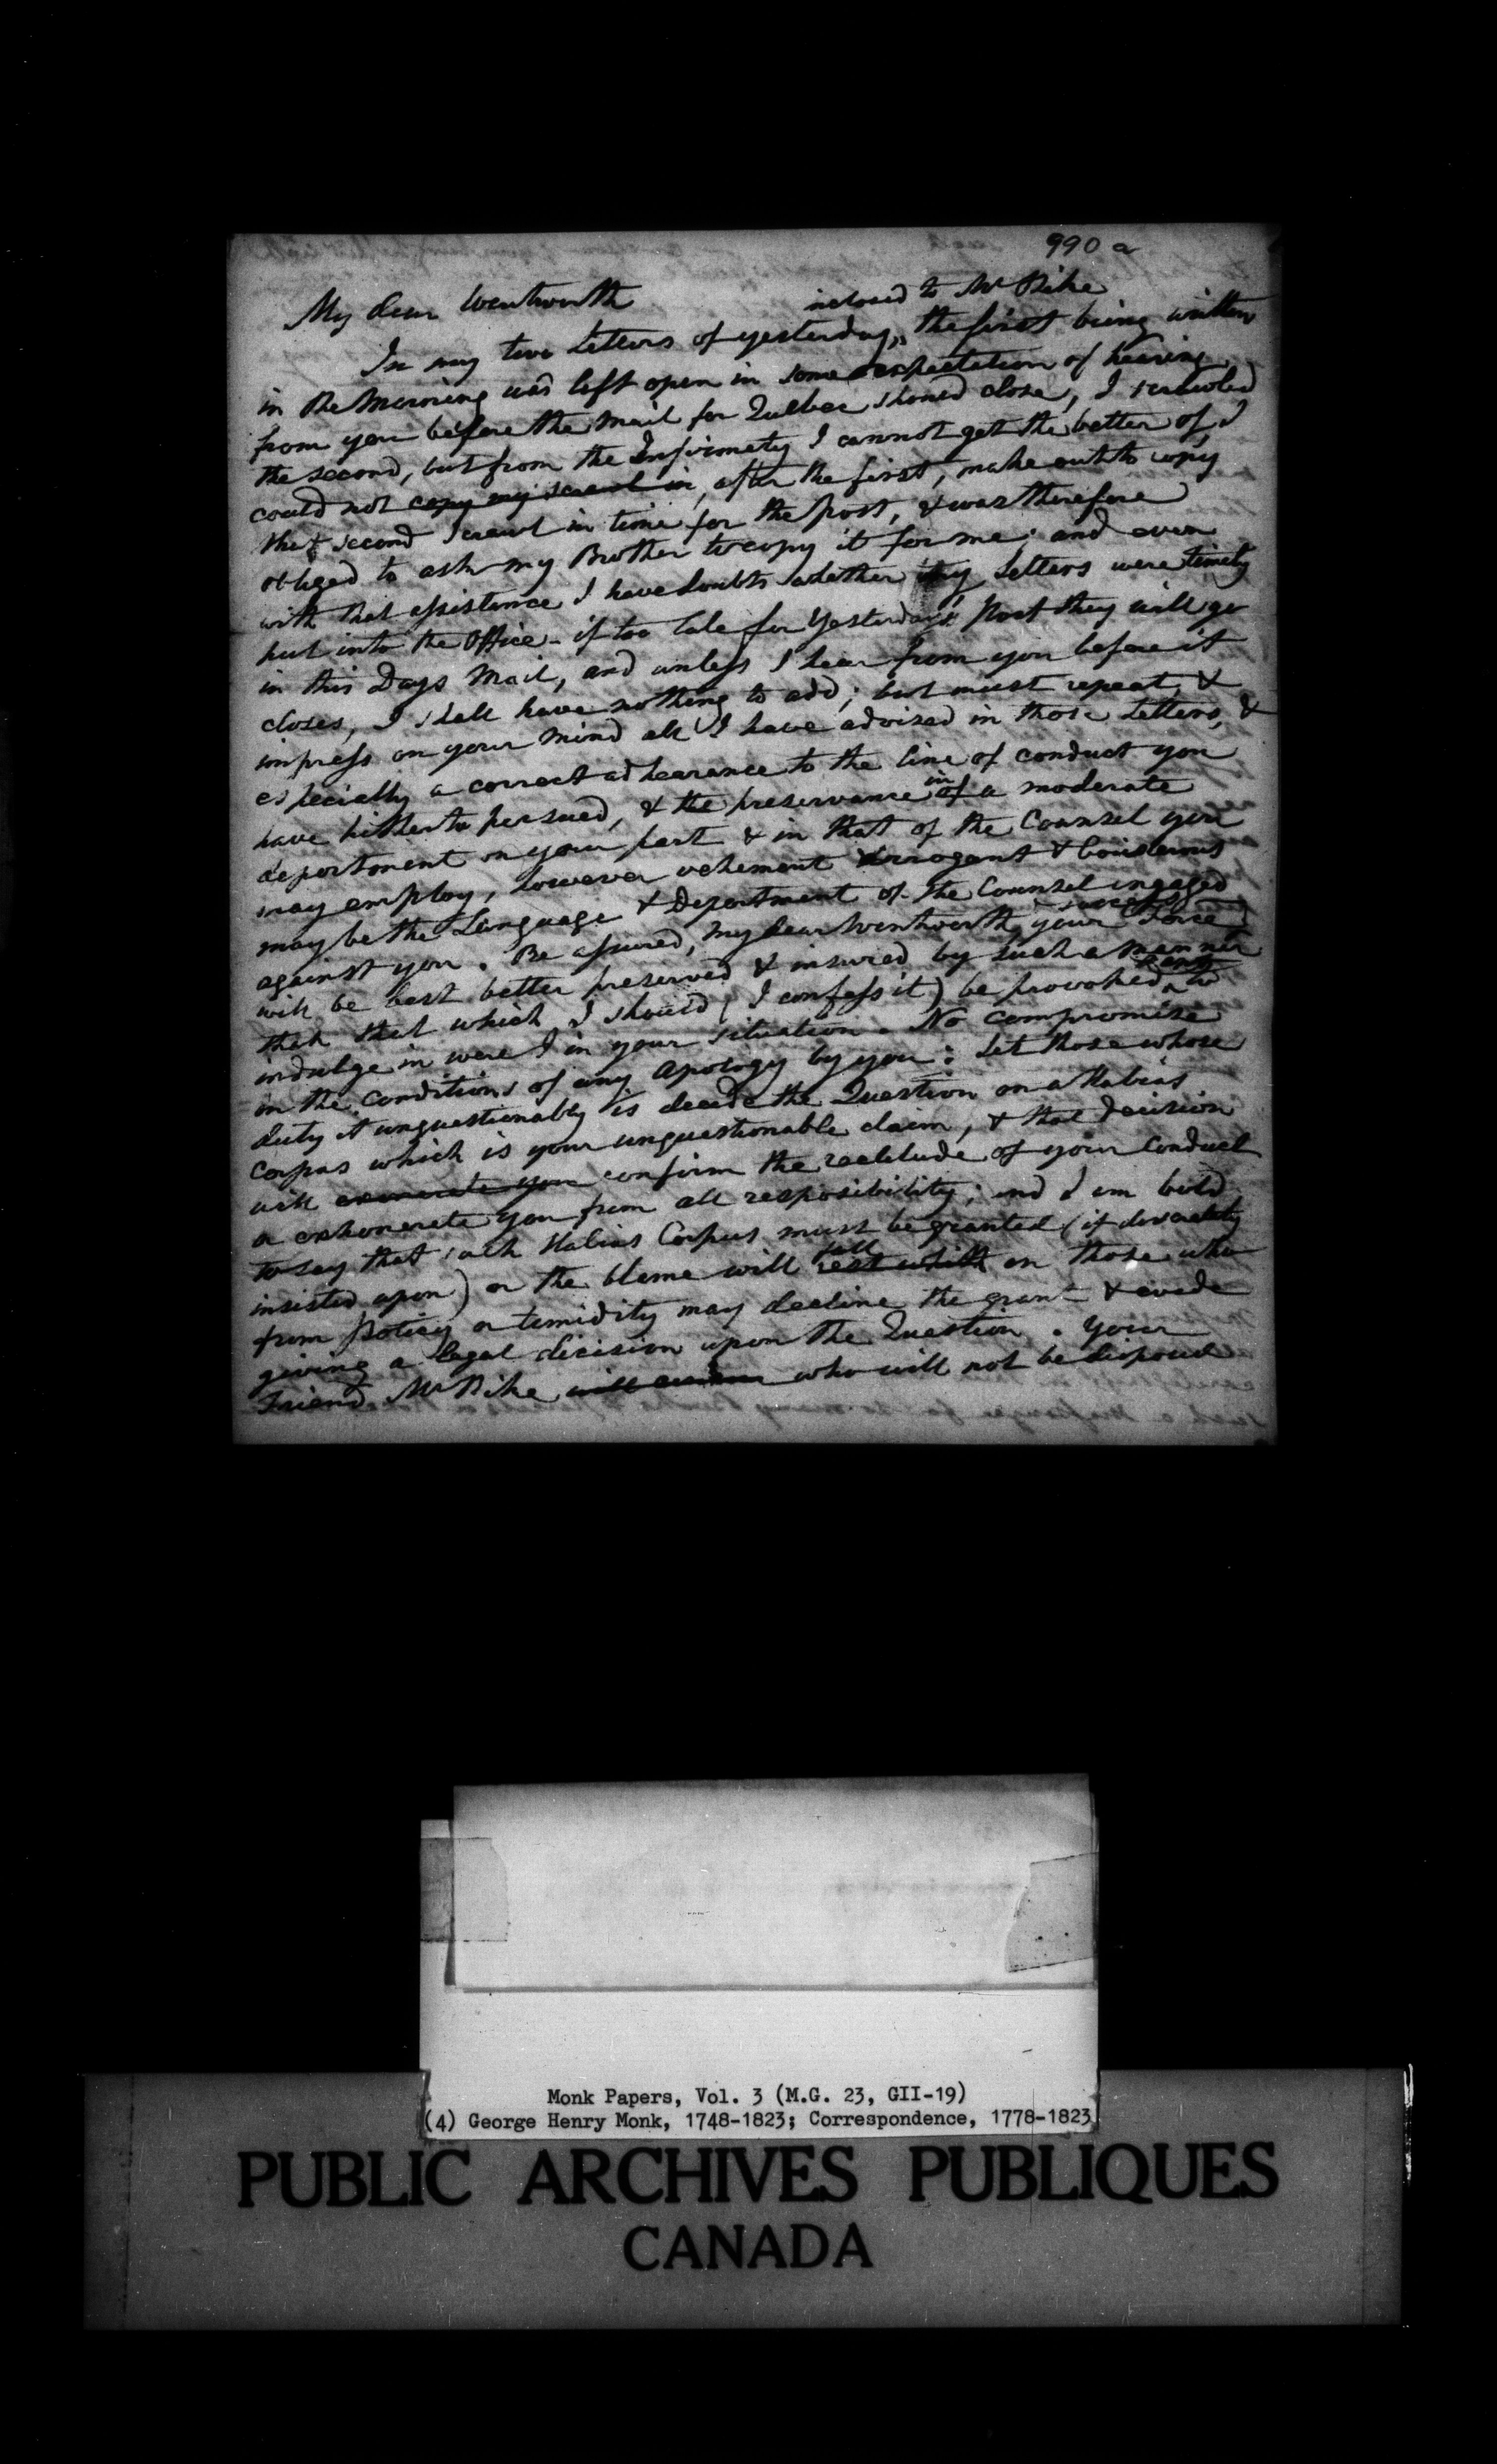 990 a
My dear Wentworth
inclosed to Mr Pike
In my two Letters of yesterday, the first being written
in the Morning was left open in some expectation of hearing
from you before the Mail for Quebec should close, I scrawled
the second, but from the Infirmety I cannot get the better of, I
could not copy my scrawl in, after the first, make out to copy
the second scrawl in time for the post, & was therefore
obliged to ask my Brother to copy it for me; and even
with that assistance I have doubts whether my Letters were timely
put into the Office - if too late for Yesterdays Post they will go
in this Days Mail, and unless I hear from you before it
closes, I shall have nothing to add; but must repeat, &
impress on your mind all I have advised in those Letters, &
especially a correct adhearance to the line of conduct you
have hitherto persued, & the preservance in of a moderate
deportment on your part & in that of the Counsel you
may employ, however vehement arrogant & boisterous
may be the Language & Deportment of the Counsel ingaged
against you. Be assured, my dear Wentworth, your
will be best better preserved & insured by such a manner
than that which I should (I confess it) be provoked to
indulge in were I in your situation. No compromise
in the conditions of any apology by you: Let those whose
duty it unquestionably is decide the Question on a Habias
Corpus which is your unquestionable claim, & that decision
will exonerate you confirm the rectitude of your conduct
or exhonerate you from all resposibility; and I am bold
to say that such Habias Corpus must be granted (if
insisted upon) or the blame will fall rest with on those who
from policy or temidity may decline the grant & evade
giving a legal decision upon the Question. Your
Friend Mr Pike will who will not be disposed
Monk Papers, Vol. 3 (M.G. 23, GII-19)
(4) George Henry Monk, 1748-1823; Correspondence, 1778-1823
PUBLIC ARCHIVES PUBLIQUES
CANADA